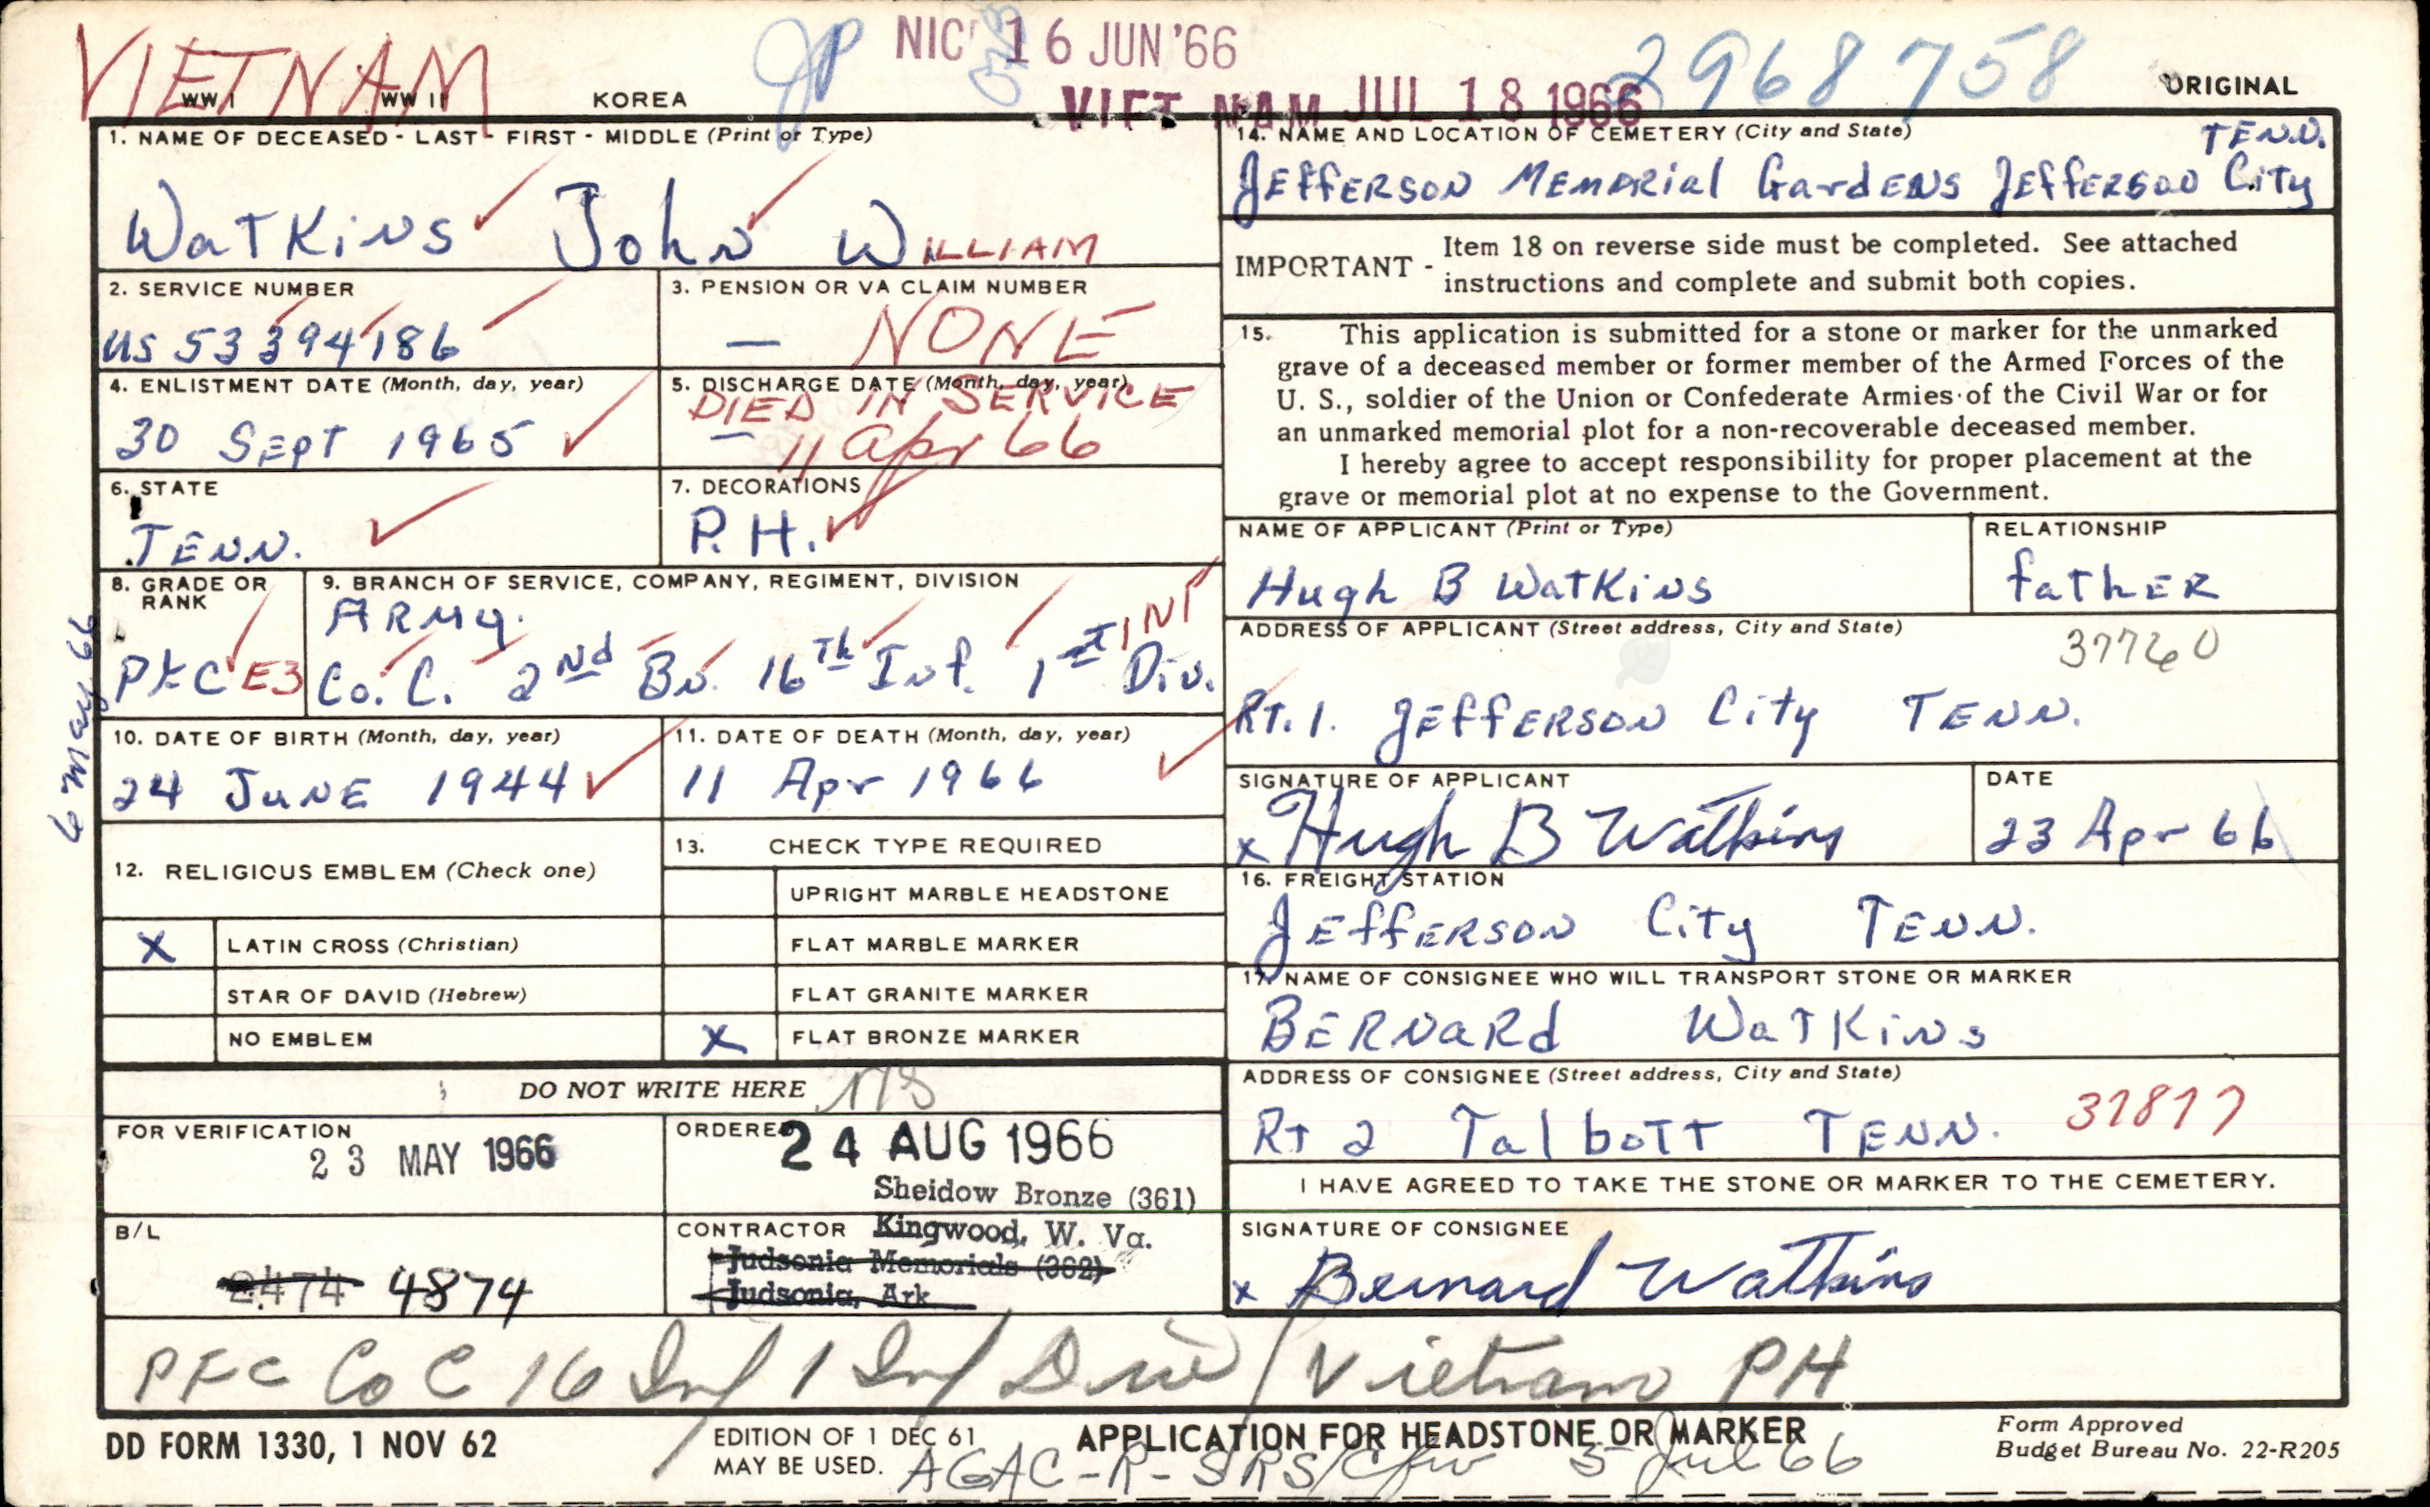 VIETNAM
JP
NIC 16 JUN '66
2968758
WW I WW II KOREA
VIET NAM JUL 18 1966
ORIGINAL
1. NAME OF DECEASED - LAST - FIRST - MIDDLE (Print or Type)
Watkins John William
2. SERVICE NUMBER
US 53394186
3. PENSION OR VA CLAIM NUMBER
— NONE
4. ENLISTMENT DATE (Month, day, year)
30 Sept 1965
5. DISCHARGE DATE (Month, day, year)
DIED IN SERVICE
— 11 Apr 66
6. STATE
TENN.
7. DECORATIONS
P.H.
8. GRADE OR RANK
PFC E3
9. BRANCH OF SERVICE, COMPANY, REGIMENT, DIVISION
ARMY.
INF
Co. C. 2nd Bn. 16th Inf. 1st Div.
6 May 66
10. DATE OF BIRTH (Month, day, year)
24 JUNE 1944
11. DATE OF DEATH (Month, day, year)
11 Apr 1966
12. RELIGIOUS EMBLEM (Check one)
X LATIN CROSS (Christian)
STAR OF DAVID (Hebrew)
NO EMBLEM
13. CHECK TYPE REQUIRED
UPRIGHT MARBLE HEADSTONE
FLAT MARBLE MARKER
FLAT GRANITE MARKER
X FLAT BRONZE MARKER
DO NOT WRITE HERE
FOR VERIFICATION
23 MAY 1966
ORDERED
24 AUG 1966
Sheidow Bronze (361)
B/L
2474 4874
CONTRACTOR Kingwood, W. Va.
Judsonia Memorials (362)
Judsonia, Ark
14. NAME AND LOCATION OF CEMETERY (City and State)
TENN.
Jefferson Memorial Gardens Jefferson City
IMPORTANT - Item 18 on reverse side must be completed. See attached
instructions and complete and submit both copies.
15. This application is submitted for a stone or marker for the unmarked
grave of a deceased member or former member of the Armed Forces of the
U. S., soldier of the Union or Confederate Armies of the Civil War or for
an unmarked memorial plot for a non-recoverable deceased member.
I hereby agree to accept responsibility for proper placement at the
grave or memorial plot at no expense to the Government.
NAME OF APPLICANT (Print or Type)
Hugh B Watkins
RELATIONSHIP
father
ADDRESS OF APPLICANT (Street address, City and State)
37760
Rt. 1. Jefferson City Tenn.
SIGNATURE OF APPLICANT
x Hugh B Watkins
DATE
23 Apr 66
16. FREIGHT STATION
Jefferson City Tenn.
17. NAME OF CONSIGNEE WHO WILL TRANSPORT STONE OR MARKER
Bernard Watkins
ADDRESS OF CONSIGNEE (Street address, City and State)
Rt 2 Talbott Tenn. 37877
I HAVE AGREED TO TAKE THE STONE OR MARKER TO THE CEMETERY.
SIGNATURE OF CONSIGNEE
x Bernard Watkins
PFC Co C 16 Inf / 1 Inf Div / Vietnam PH
DD FORM 1330, 1 NOV 62
EDITION OF 1 DEC 61
MAY BE USED.
APPLICATION FOR HEADSTONE OR MARKER
AGAC-R-SRS/ 5 Jul 66
Form Approved
Budget Bureau No. 22-R205